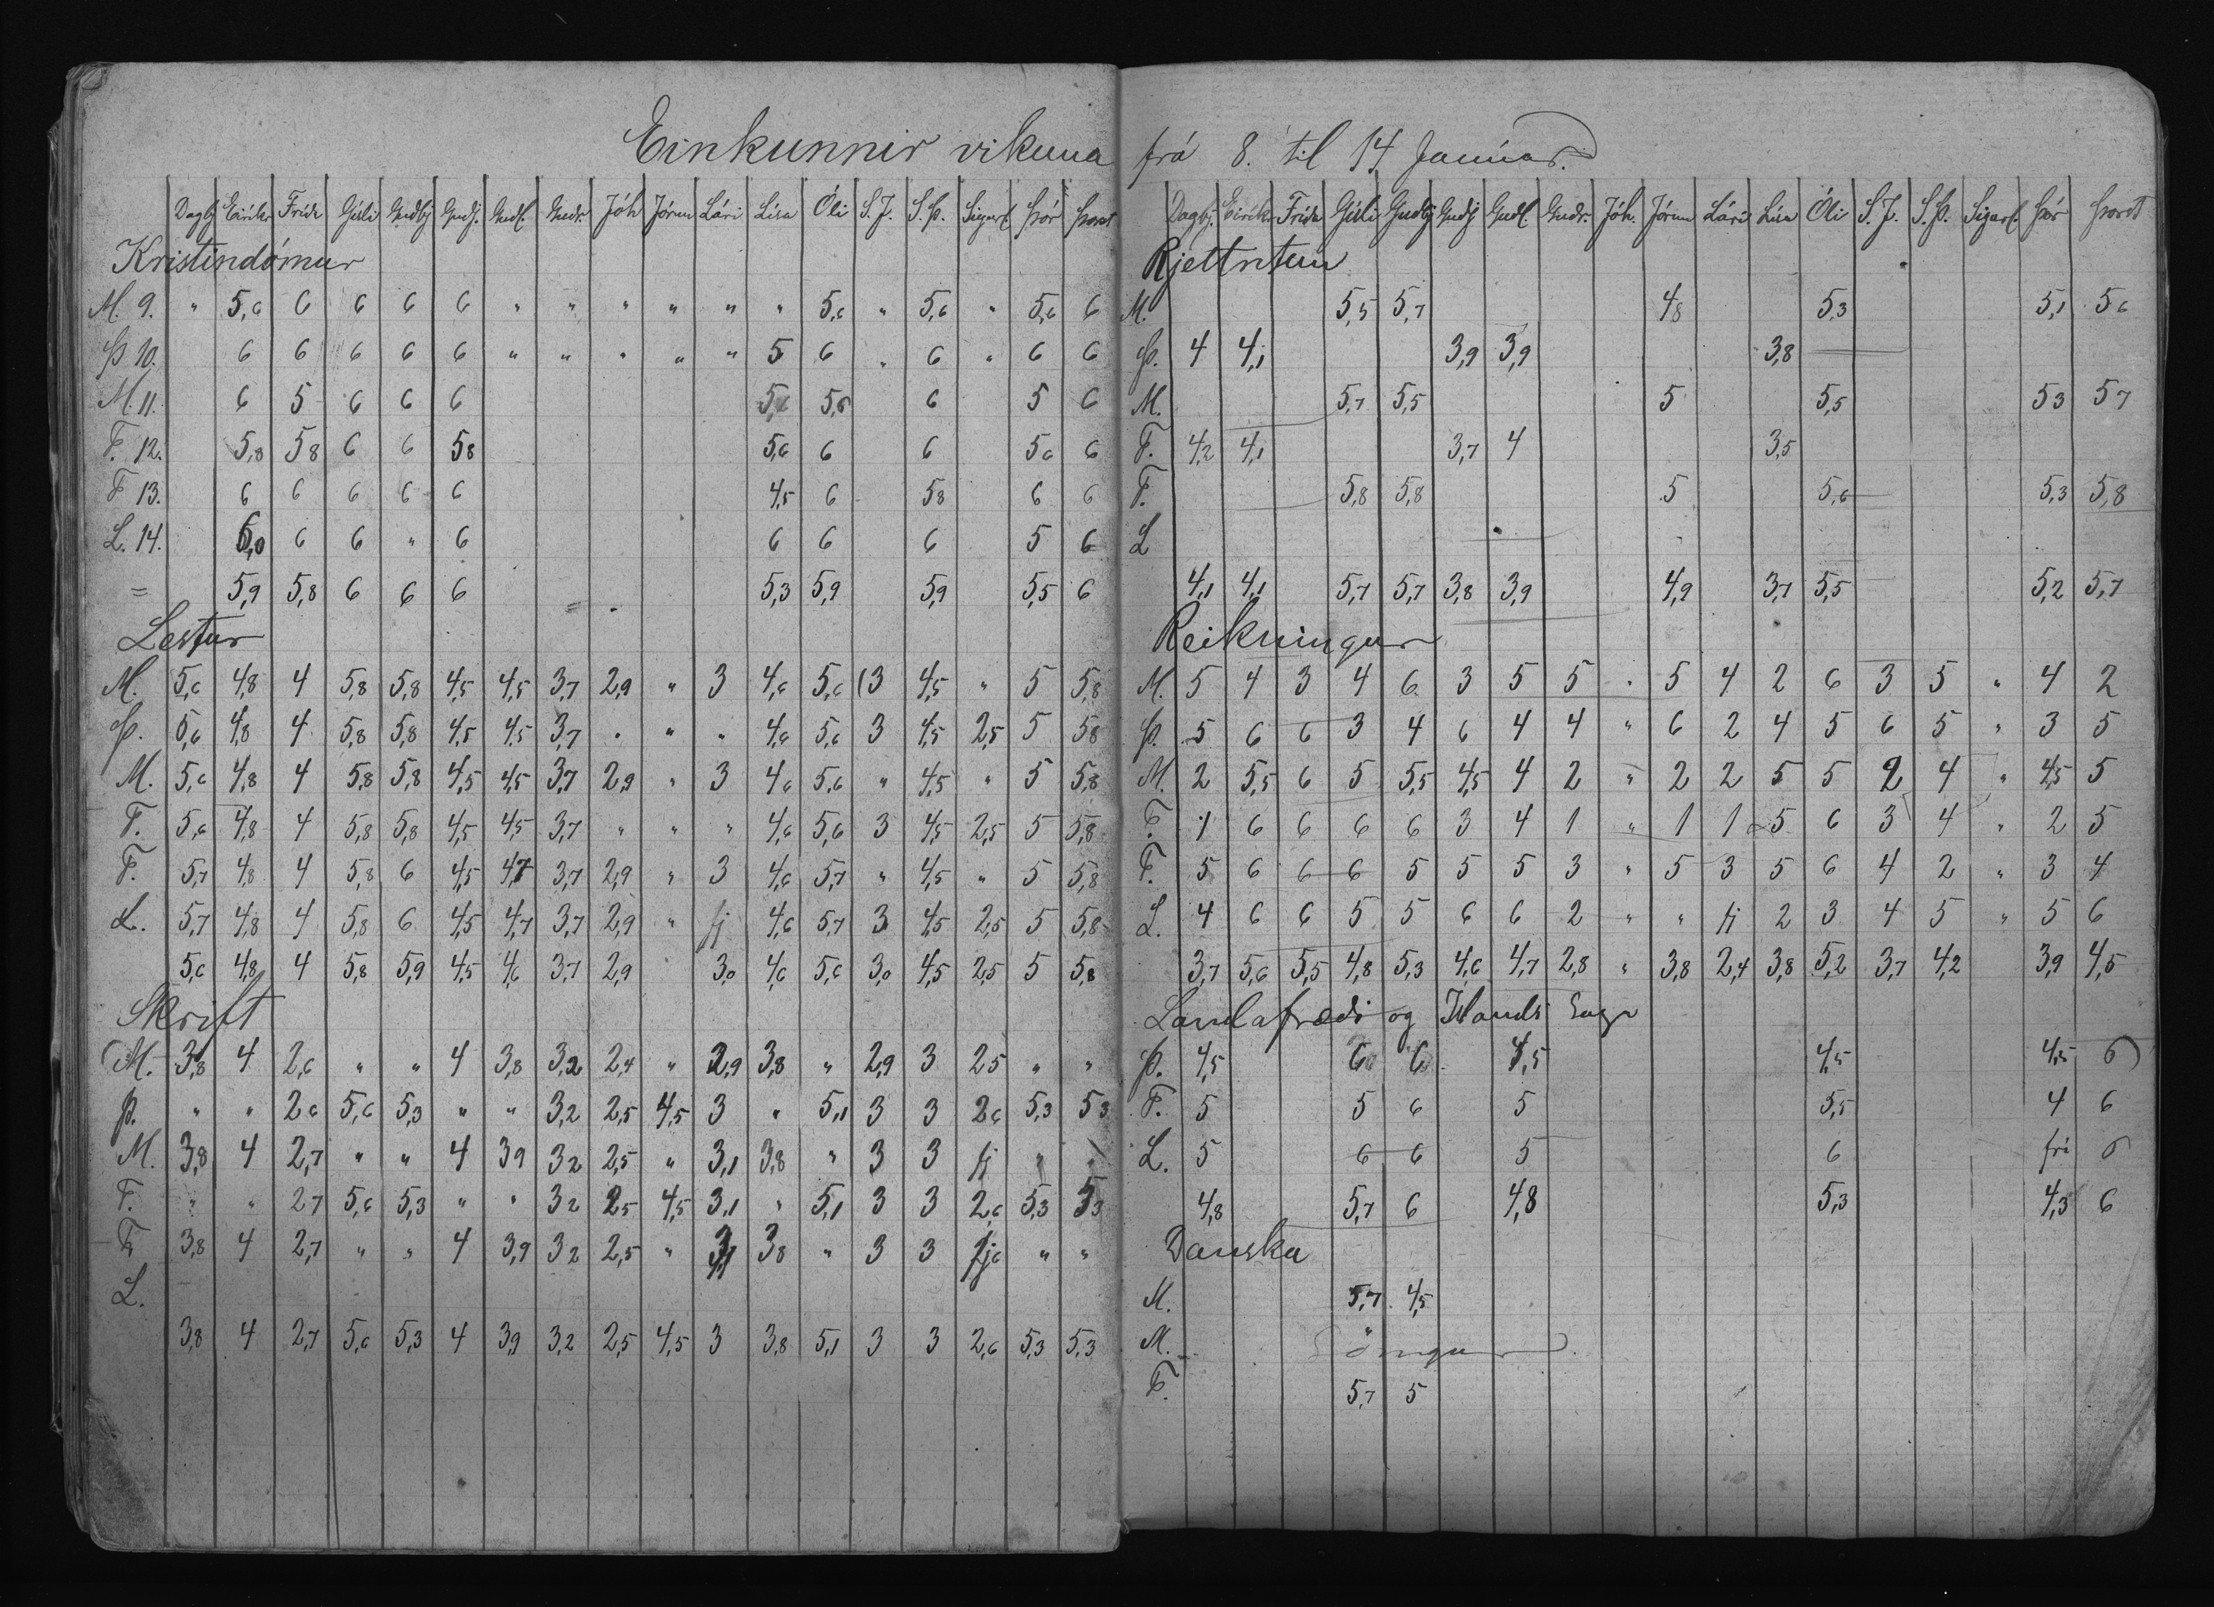 Einkunnir vikuna
Dagbj Eiríkr Fríða Gísli Guðbj Guðj. Guðl. Guðr. Jóh Jórun Lári Lísa Óli S.J. S.Þ. Sigurl Þór Þorst
Kristindómur
M. 9. " 5,6 6 6 6 6 " " " " " " 5,6 " 5,6 " 5,6 6
Þ 10. 6 6 6 6 6 " " " " " 5 6 " 6 " 6 6
M. 11. 6 5 6 6 6 5,6 5,6 6 5 6
F. 12. 5,8 58 6 6 58 5,6 6 6 56 6
F 13. 6 6 6 6 6 4,5 6 58 6 6
L. 14. 6,0 6 6 " 6 6 6 6 5 6
= 5,9 5,8 6 6 6 5,3 5,9 5,9 5,5 6
Lestur
M. 5,6 4,8 4 5,8 5,8 4,5 4,5 3,7 2,9 " 3 4,6 5,6 (3 4,5 " 5 5,8
Þ. 5,6 4,8 4 5,8 5,8 4,5 4,5 3,7 " " " 4,6 5,6 3 4,5 2,5 5 58
M. 5,6 4,8 4 5,8 5,8 4,5 4,5 3,7 2,9 " 3 4,6 5,6 " 4,5 " 5 5,8
F. 5,6 4,8 4 5,8 5,8 4,5 4,5 3,7 " " " 4,6 5,6 3 4,5 2,5 5 5,8
F. 5,7 4,8 4 5,8 6 4,5 4,7 3,7 2,9 " 3 4,6 5,7 " 4,5 " 5 5,8
L. 5,7 4,8 4 5,8 6 4,5 4,7 3,7 2,9 " fj 4,6 5,7 3 4,5 2,5 5 5,8
5,6 4,8 4 5,8 5,9 4,5 4,6 3,7 2,9 3,0 4,6 5,6 3,0 4,5 2,5 5 5,8
Skrift
M. 3,8 4 2,6 " " 4 3,8 3,2 2,4 " 2,9 3,8 " 2,9 3 25 " "
Þ. " " 26 5,6 5,3 " " 3,2 2,5 4,5 3 " 5,1 3 3 26 5,3 53
M. 3,8 4 2,7 " " 4 39 32 2,5 " 3,1 3,8 " 3 3 fj " "
F. " " 27 5,6 5,3 " " 32 25 4,5 3,1 " 5,1 3 3 2,6 5,3 53
F. 3,8 4 2,7 " " 4 3,9 32 2,5 " 3,1 38 " 3 3 fj " "
L.
3,8 4 2,7 5,6 5,3 4 39 3,2 2,5 4,5 3 3,8 5,1 3 3 2,6 5,3 5,3
frá 8. til 14 Janúar.
Dagbj. Eirík. Fríða Gísli Guðbj Guðj Guðl. Guðr. Jóh. Jórun Lári Lísa Óli S.J. S.Þ. Sigurl. Þór Þorst
Rjettritun
M. 5,5 5,7 48 5,3 5,1 56
Þ. 4 4,1 3,9 3,9 3,8
M. 5,7 5,5 5 5,5 53 57
F. 4,2 4,1 3,7 4 3,5
F. 5,8 5,8 5 5,6 5,3 5,8
L
4,1 4,1 5,7 5,7 3,8 3,9 4,9 3,7 5,5 5,2 5,7
Reikningur
M. 5 4 3 4 6 3 5 5 " 5 4 2 6 3 5 " 4 2
Þ. 5 6 6 3 4 6 4 4 " 6 2 4 5 6 5 " 3 5
M. 2 5,5 6 5 5,5 4,5 4 2 " 2 2 5 5 2 4 " 4,5 5
F. 1 6 6 6 6 3 4 1 " 1 1 5 6 3 4 " 2 5
F. 5 6 6 6 5 5 5 3 " 5 3 5 6 4 2 " 3 4
L. 4 6 6 5 5 6 6 2 " " fj 2 3 4 5 " 5 6
3,7 5,6 5,5 4,8 5,3 4,6 4,7 2,8 " 3,8 2,4 3,8 5,2 3,7 4,2 3,9 4,5
Landafræði og Íslands Saga
Þ. 4,5 6 6 4,5 4,5 4,5 6
F. 5 5 6 5 5,5 4 6
L. 5 6 6 5 6 frí 6
4,8 5,7 6 4,8 5,3 4,3 6
Danska
M. 5,7 4,5
M. Söngur
F. 5,7 5